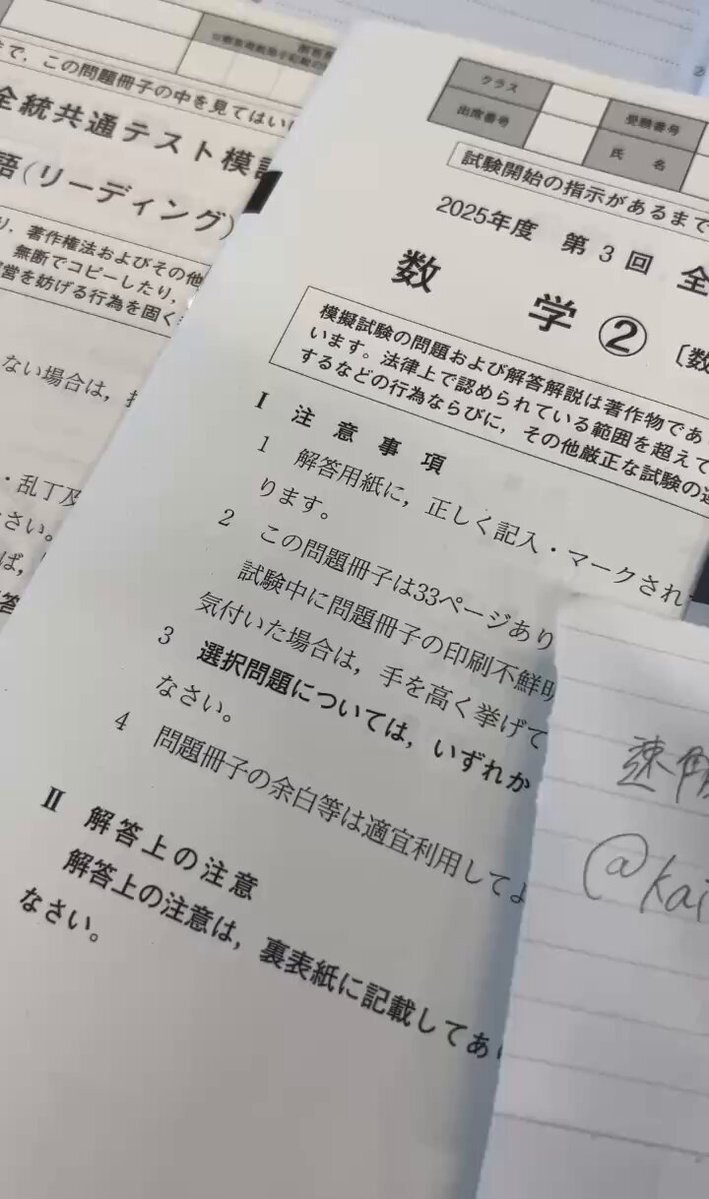 で，この問題冊子の中を見てはいけ
全統共通テスト模試
語(リーディング)
り，著作権法およびその他
無断でコピーしたり，
営を妨げる行為を固く
ない場合は，
・乱丁及
さい。
ば，
答
クラス
出席番号
受験番号
氏 名
試験開始の指示があるまで
2025年度 第3回 全
数 学 ② 〔数
模擬試験の問題および解答解説は著作物であり
います。法律上で認められている範囲を超えて
するなどの行為ならびに，その他厳正な試験の運
I 注意事項
1 解答用紙に，正しく記入・マークされ
ります。
2 この問題冊子は33ページあり
試験中に問題冊子の印刷不鮮明
気付いた場合は，手を高く挙げて
3 選択問題については，いずれか
なさい。
4 問題冊子の余白等は適宜利用してよ
II 解答上の注意
解答上の注意は，裏表紙に記載してあ
なさい。
速解
@kai